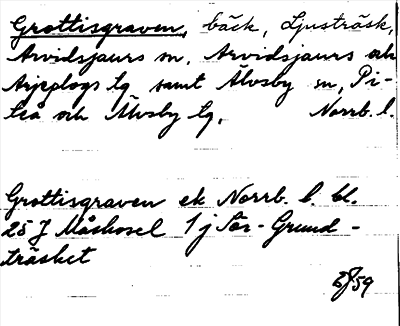 Grottisgraven, bäck, Ljusträsk,
Arvidsjaurs sn, Arvidsjaurs och
Arjeplogs lg samt Älvsby sn, Pi-
teå och Älvsby lg, Norrb. l.
Grottisgraven ek Norrb. l. bl.
25 J Måskosel 1 j Sör-Grund-
träsket
59